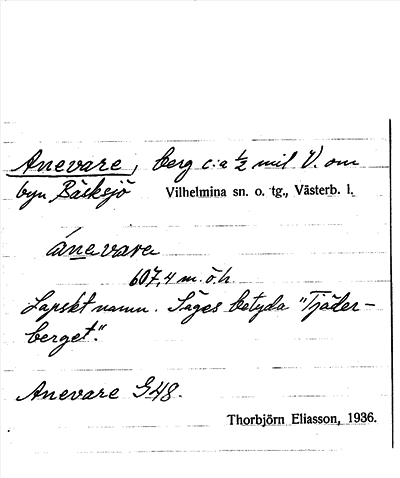 Anevare, berg c:a ½ mil V. om
byn Bäsksjö Vilhelmina sn. o. tg., Västerb. l.
ánevare
607,4 m. ö. h.
Lapskt namn. Säges betyda "Tjäder-
berget."
Anevare G48.
Thorbjörn Eliasson, 1936.